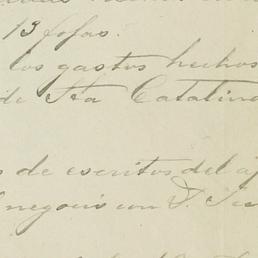 13 fojas.
los gastos hechos
de Sta Catalina
s de escritos del
negocio con D.